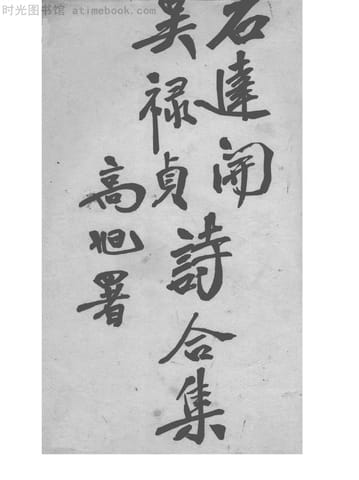 时光图书馆 atimebook.com
石達開
吴禄貞
詩合集
高旭署